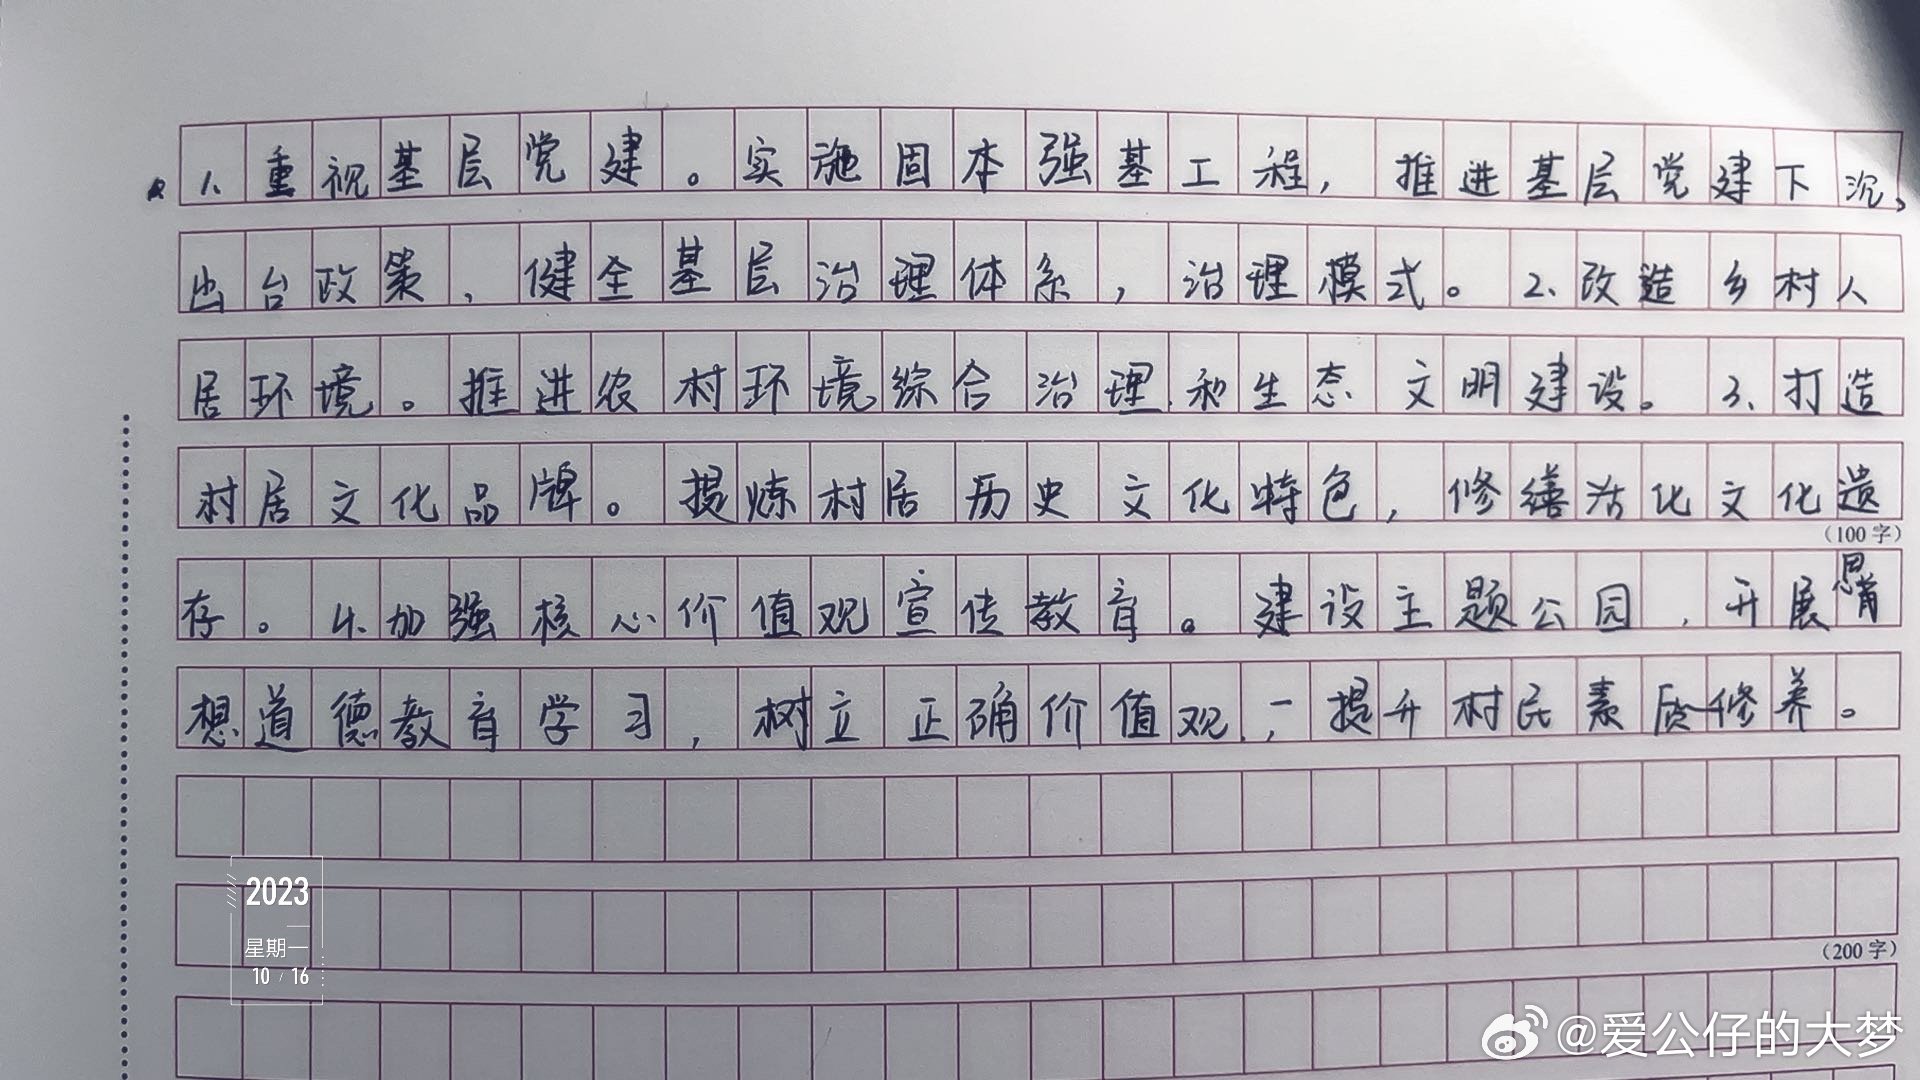 1.重视基层党建。实施固本强基工程,推进基层党建下沉,
出台政策、健全基层治理体系,治理模式。2.改造乡村人
居环境。推进农村环境综合治理和生态文明建设。3.打造
村居文化品牌。提炼村居历史文化特色,修缮活化文化遗
(100字)
存。4.加强核心价值观宣传教育。建设主题公园,开展思
想道德教育学习,树立正确价值观,提升村民素质修养。
2023
星期一
10 / 16
(200字)
@爱公仔的大梦